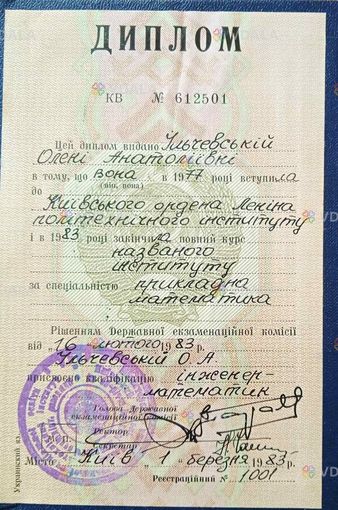 ДИПЛОМ
КВ № 612501
Цей диплом видано Ільчевській
Олені Анатоліївні
в тому, що вона в 1977 році вступила
(він, вона)
до Київського ордена Леніна
політехнічного інституту
і в 1983 році закінчила повний курс
названого
інституту
за спеціальністю прикладна
математика
Рішенням Державної екзаменаційної комісії
від "16" лютого 1983 р.
Ільчевській О.А.
присвоєно кваліфікацію інженер-
математик
Голова Державної
екзаменаційної комісії
Ректор
Секретар
М.П.
Місто Київ 1 березня 1983 р.
Реєстраційний № 1001
Украинский яз.